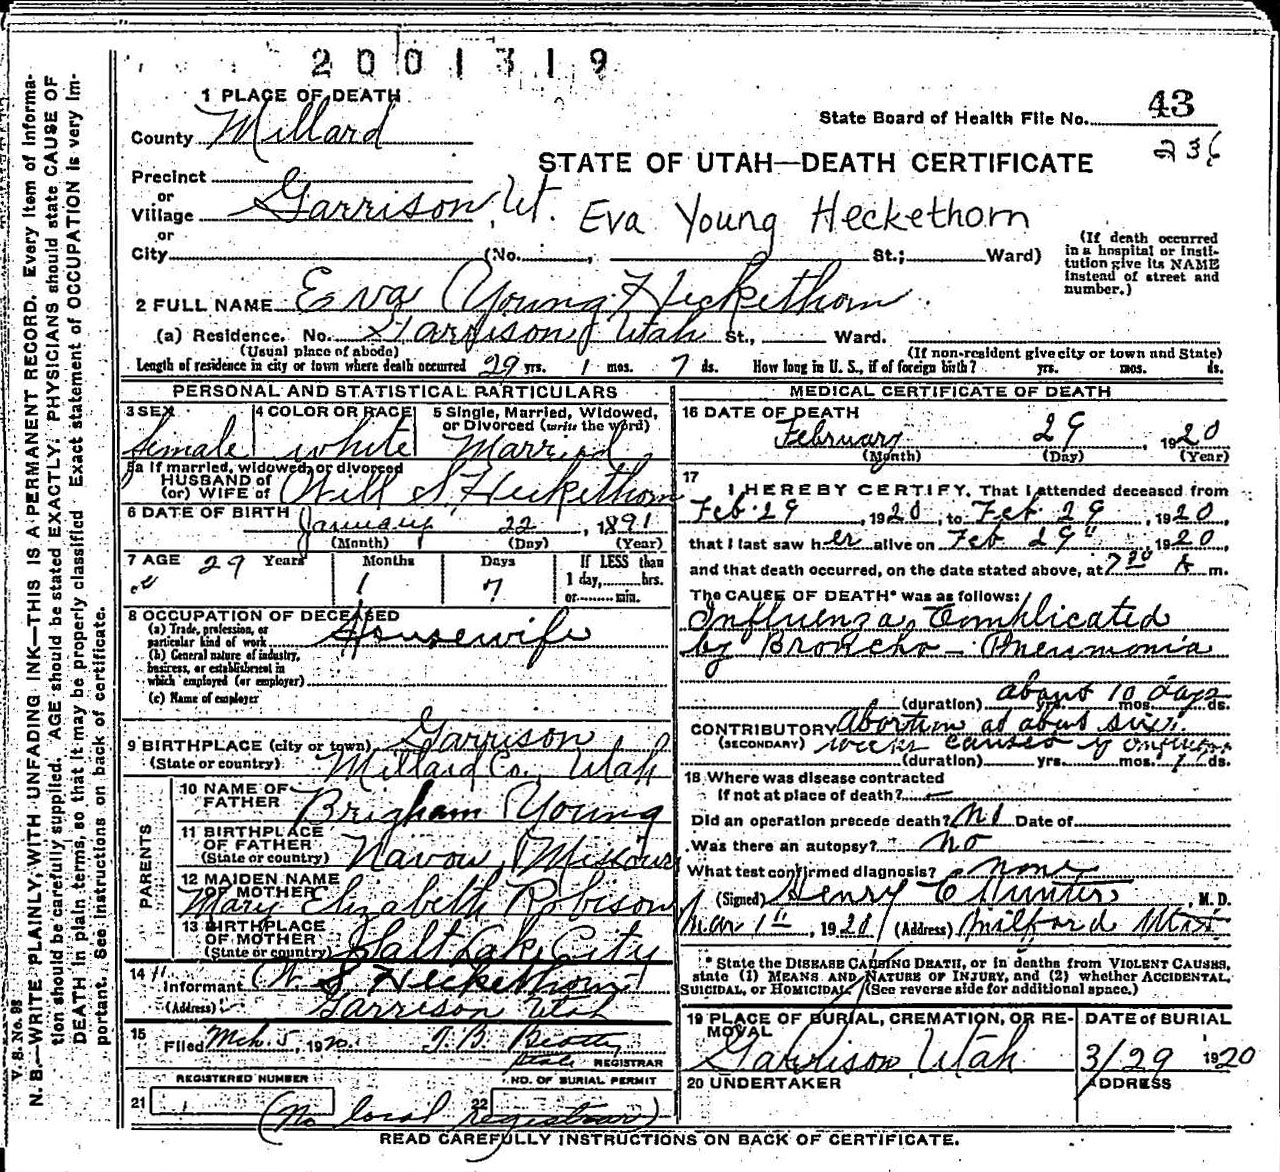 2001319
1 PLACE OF DEATH
County Millard
State Board of Health File No. 43
236
STATE OF UTAH—DEATH CERTIFICATE
Precinct
or
Village Garrison, Ut.
Eva Young Heckethorn
or
City (No. , St.; Ward)
(If death occurred in a hospital or institution give its NAME instead of street and number.)
2 FULL NAME Eva Young Heckethorn
(a) Residence. No. Garrison Utah St., Ward.
(Usual place of abode) (If non-resident give city or town and State)
Length of residence in city or town where death occurred 29 yrs. 1 mos. 7 ds. How long in U. S., if of foreign birth? yrs. mos. ds.
PERSONAL AND STATISTICAL PARTICULARS
3 SEX 4 COLOR OR RACE 5 Single, Married, Widowed, or Divorced (write the word)
female white Married
5a If married, widowed, or divorced
HUSBAND of
(or) WIFE of Will S. Heckethorn
6 DATE OF BIRTH January 22, 1891
(Month) (Day) (Year)
7 AGE 29 Years 1 Months 7 Days If LESS than 1 day, hrs. or min.
8 OCCUPATION OF DECEASED
(a) Trade, profession, or particular kind of work Housewife
(b) General nature of industry, business, or establishment in which employed (or employer)
(c) Name of employer
9 BIRTHPLACE (city or town) Garrison
(State or country) Millard Co., Utah
PARENTS
10 NAME OF FATHER Brigham Young
11 BIRTHPLACE OF FATHER (State or country) Navou, Missouri
12 MAIDEN NAME OF MOTHER Mary Elizabeth Robison
13 BIRTHPLACE OF MOTHER (State or country) Salt Lake City
14 Informant W S Heckethorn
(Address) Garrison Utah
15 Filed Mch. 5, 1920. REGISTRAR
REGISTERED NUMBER NO. OF BURIAL PERMIT
21 22
(No local registrar)
MEDICAL CERTIFICATE OF DEATH
16 DATE OF DEATH
February 29, 1920
(Month) (Day) (Year)
17 I HEREBY CERTIFY, That I attended deceased from
Feb. 29, 1920, to Feb. 29, 1920,
that I last saw her alive on Feb 29", 1920,
and that death occurred, on the date stated above, at 7 30 A m.
The CAUSE OF DEATH* was as follows:
Influenza, Complicated
by Broncho-Pneumonia
about 10 days
(duration) yrs. mos. ds.
CONTRIBUTORY Abortion at about six
(SECONDARY) weeks caused by
(duration) yrs. mos. 1 ds.
18 Where was disease contracted
If not at place of death? —
Did an operation precede death? No Date of
Was there an autopsy? no
What test confirmed diagnosis? none
(Signed) Henry C Hunter, M. D.
Mar 1st, 1920 (Address) Milford Utah
* State the DISEASE CAUSING DEATH, or in deaths from VIOLENT CAUSES, state (1) MEANS AND NATURE OF INJURY, and (2) whether ACCIDENTAL, SUICIDAL, or HOMICIDAL. (See reverse side for additional space.)
19 PLACE OF BURIAL, CREMATION, OR REMOVAL DATE of BURIAL
Garrison, Utah 3/29 1920
20 UNDERTAKER ADDRESS
READ CAREFULLY INSTRUCTIONS ON BACK OF CERTIFICATE.
V. S. No. 98
N. B.—WRITE PLAINLY, WITH UNFADING INK—THIS IS A PERMANENT RECORD. Every item of information should be carefully supplied. AGE should be stated EXACTLY. PHYSICIANS should state CAUSE OF DEATH in plain terms, so that it may be properly classified. Exact statement of OCCUPATION is very important. See instructions on back of certificate.